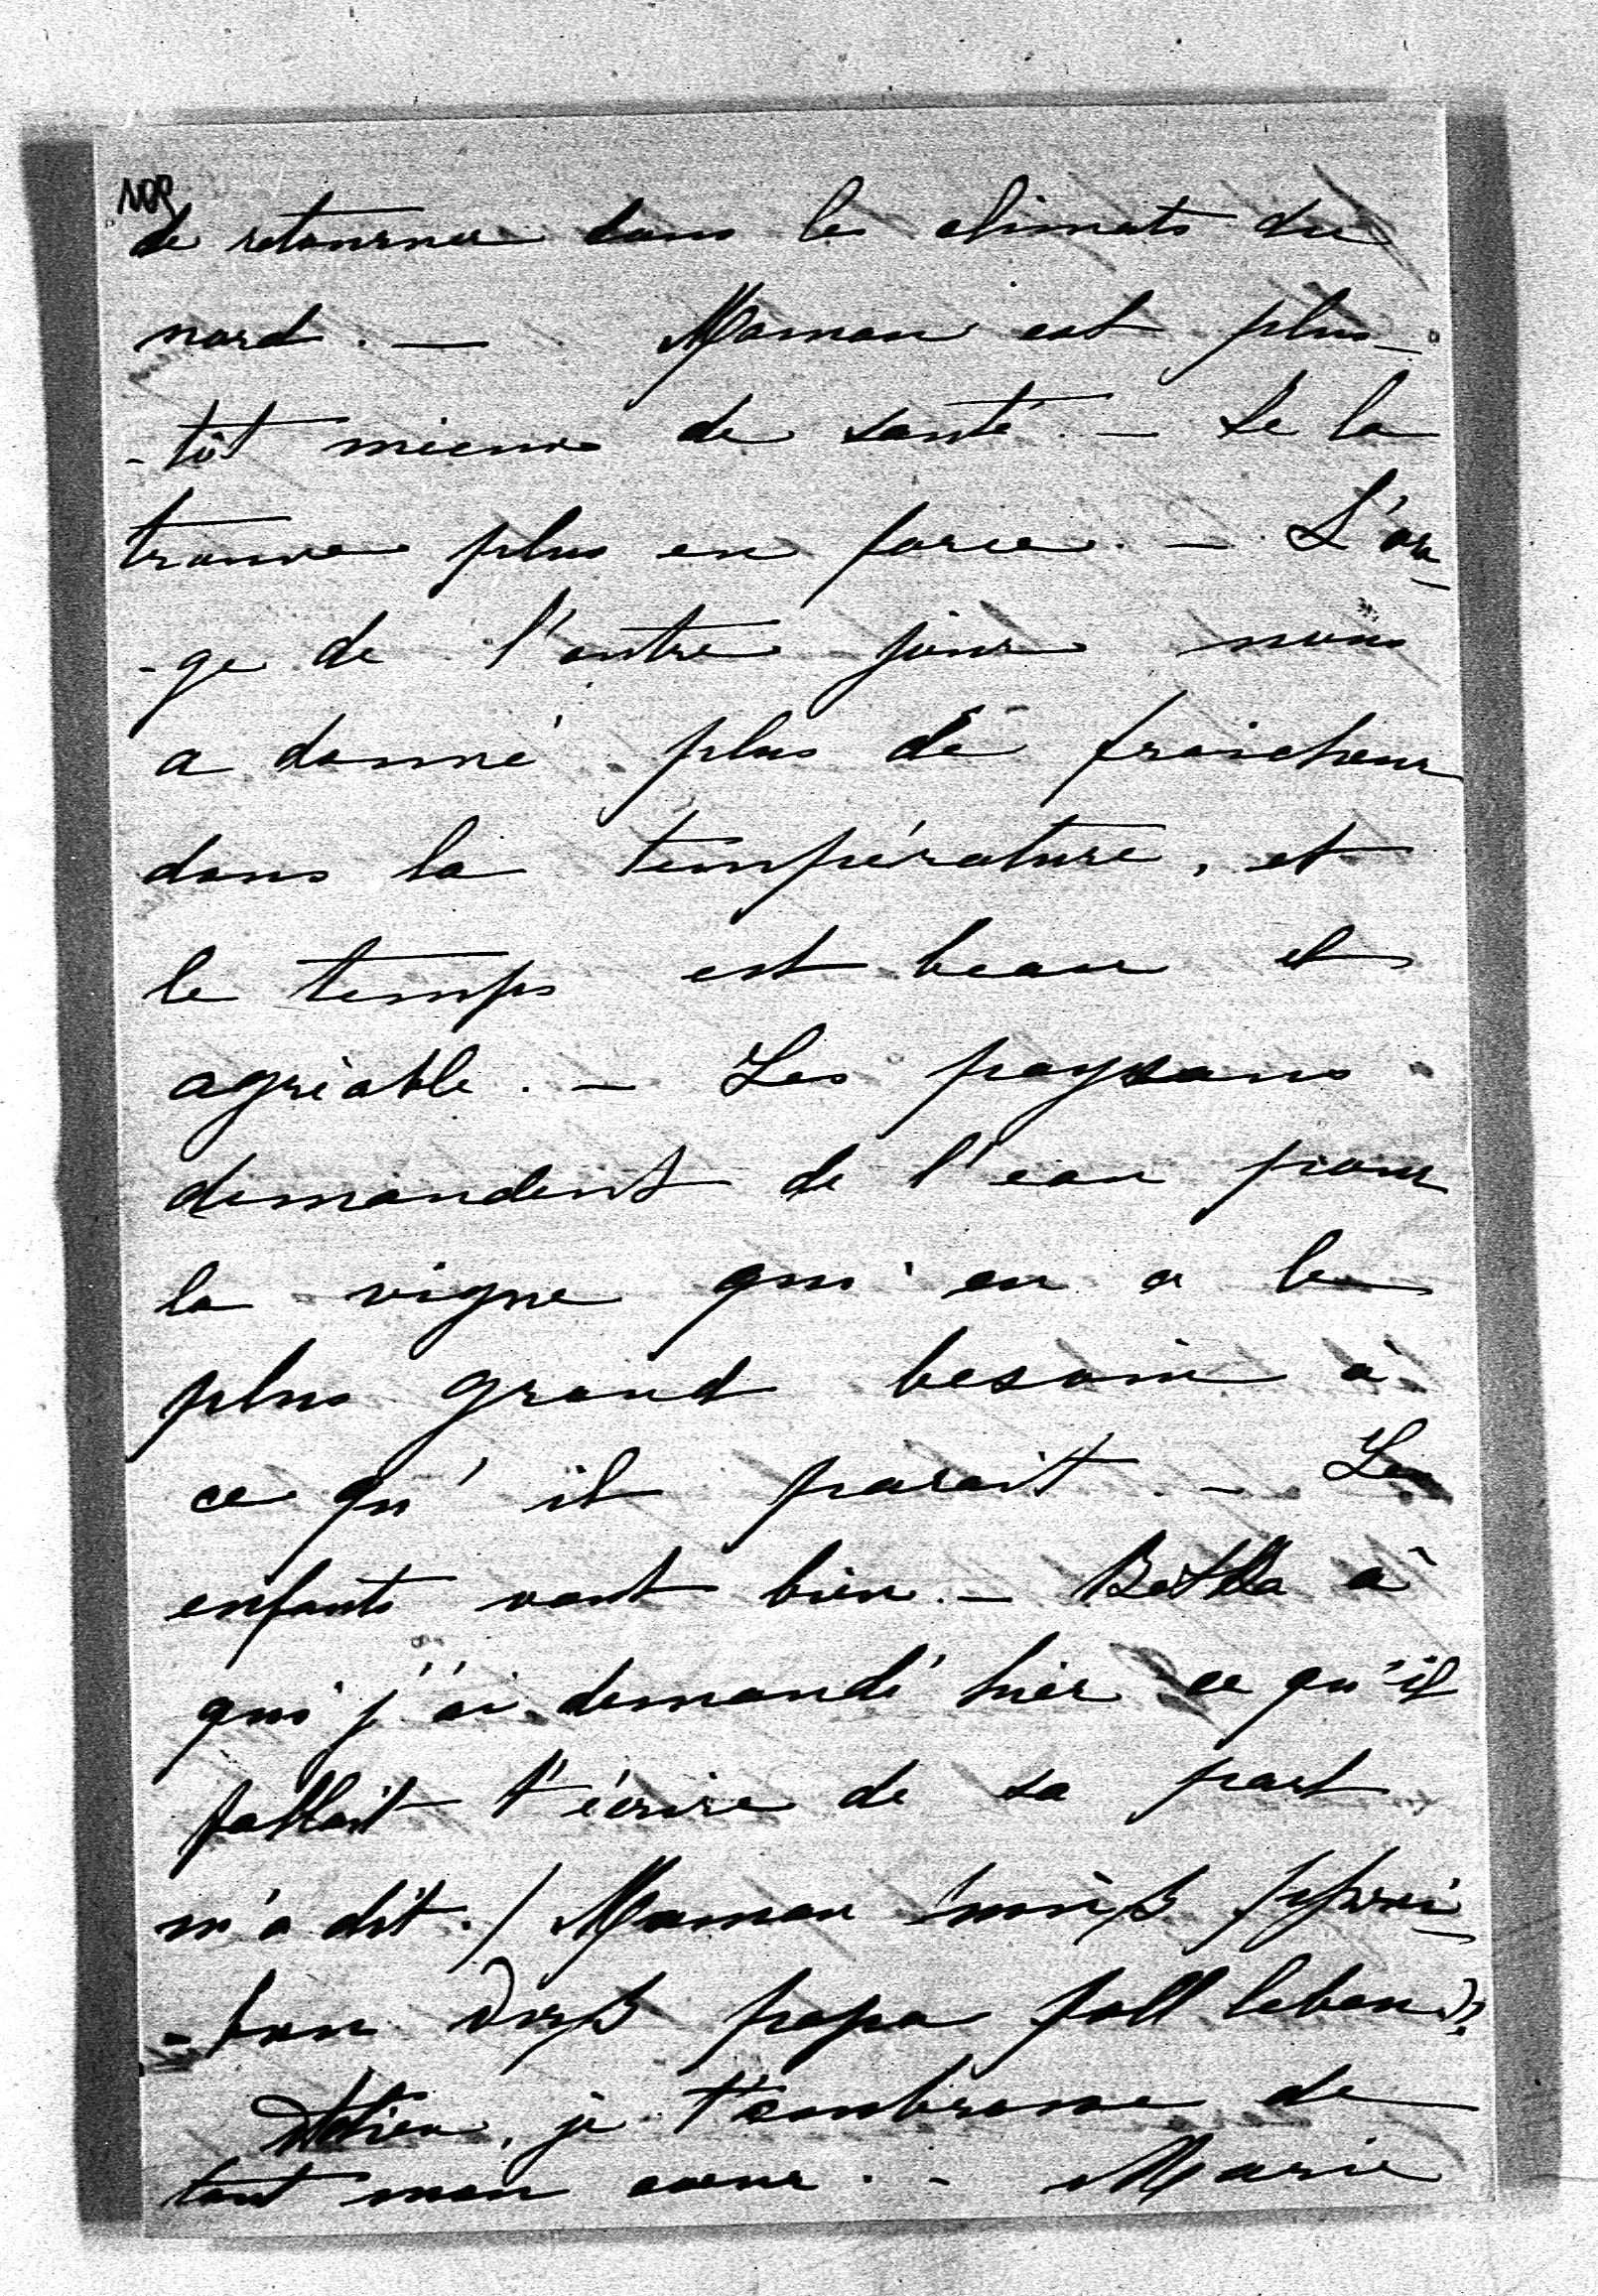 de retourner dans les climats du
nord. — Maman est plus-
-tôt mieux de santé. — Je la
trouve plus en force. — L'ora-
-ge de l'autre jour nous
a donné plus de fraicheur
dans la température, et
le temps est beau et
agréable. — Les paysans
demandent de l'eau pour
la vigne qui en a le
plus grand besoin à
ce qu'il parait. — Les
enfants vont bien. — Bella à
qui j'ai demandé hier ce qu'il
fallait t'écrire de sa part
m'a dit. / Maman muß schrei-
-ben daß papa soll leben
Adieu, je t'embrasse de
tout mon cœur. — Marie